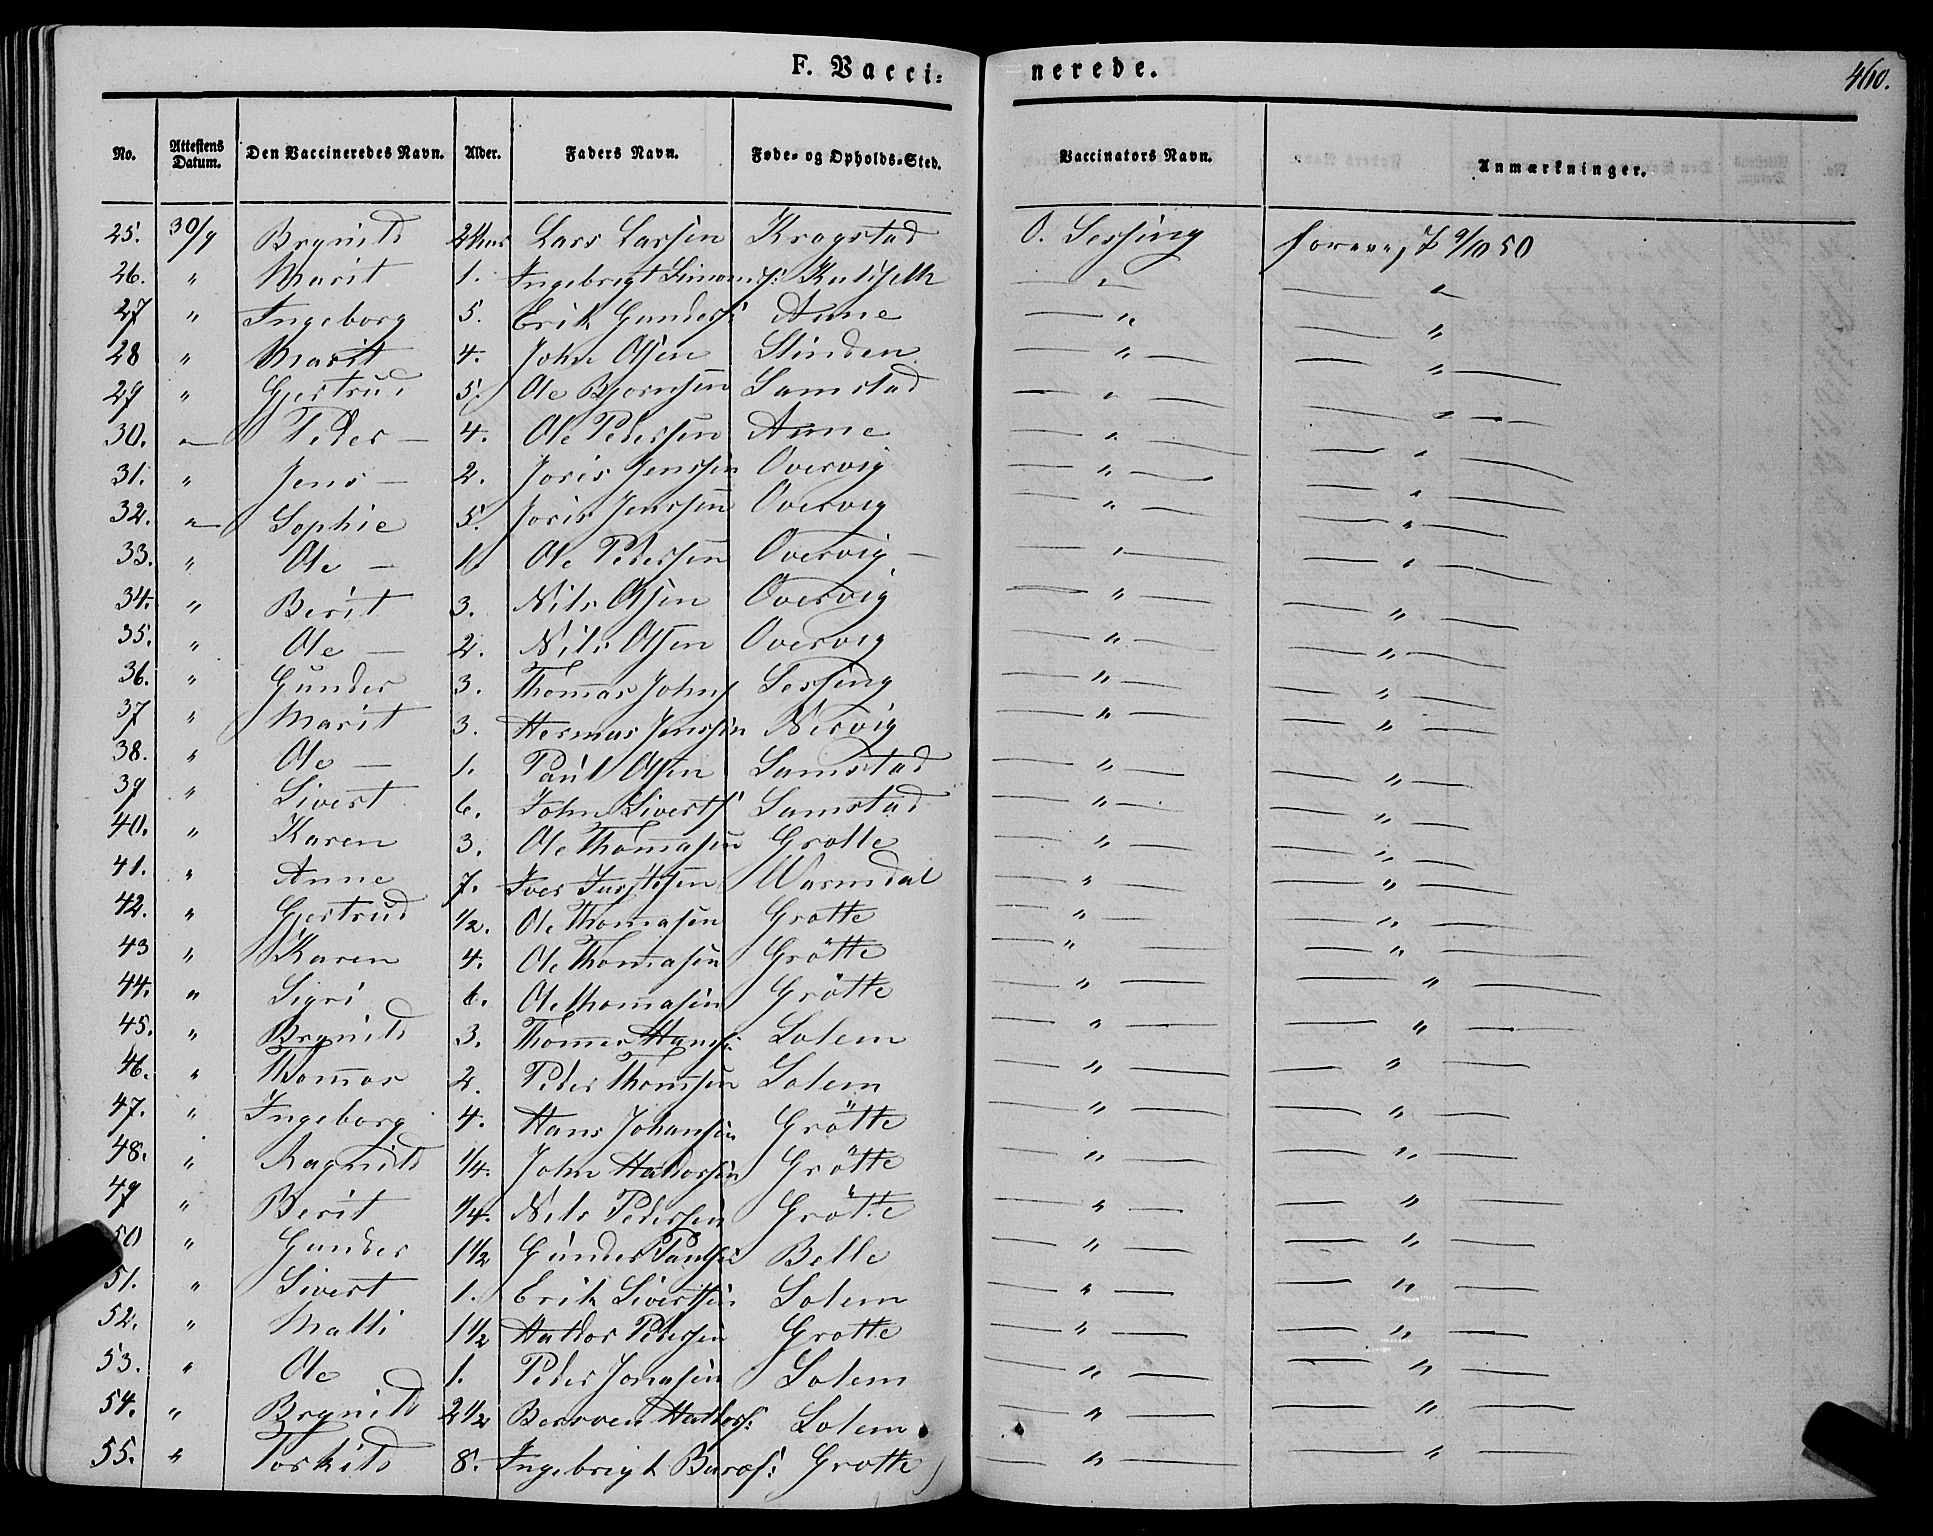 F. Vacci=
nerede.
460.
No. Attestens Datum. Den Vaccineredes Navn. Alder. Faders Navn. Føde- og Opholds-Sted. Vaccinators Navn. Anmærkninger.
25. 30/9 Brynild Lars Larssen Krogstad O. Lessing 9/10 50
26. " Marit 1. Ingebrigt " "
27 " Ingeborg 5. Erik Gunders: Anne " "
28 " Marit 4. John Olsen Slinden " "
29 " Gjertrud 5. Ole Bjørnsen Samstad " "
30. " Peder 4. Ole Pederssen Anne " "
31. " Jens 2. Joris Jenssen Overvig " "
32. " Sophie 5. Joris Jenssen Overvig " "
33. " Ole Ole Pederssen Overvig " "
34. " Berit 3. Nils Olsen Overvig " "
35. " Ole 2. Nils Olsen Overvig " "
36. " Gunder 3. Thomas Johns Lessing " "
37 " Marit 3. Hermar Jenssen Nervig " "
38. " Ole 1. Paul Olsen Samstad " "
39 " Sivert 6. John Siverts Samstad " "
40. " Karen 3. Ole Thomasen Grotte " "
41. " Anne 7. Iver Warmdal " "
42. " Gjertrud 1/2. Ole Thomasen Grotte " "
43 " Karen 4. Ole Thomasen Grötte " "
44. " Sigri 6. Ole Thomasen Grötte " "
45. " Brynild 3. Thomes Hans: Solem " "
46. " Thomas 2. Peder Thomsen Solem " "
47. " Ingeborg 4. Hans Johansen Grötte " "
48. " Ragnild 1/4. John Haldorsen Grötte " "
49 " Berit 1/4. Nils Pederssen Grötte " "
50 " Gunder 1 1/2 Gunder Belle " "
51. " Sivert 1. Erik Sivertsen Solem " "
52. " Malli 1 1/2 Haldor Pedersen Grotte " "
53. " Ole 1. Peder Jonasen Solem " "
54. " Brynild 2 1/2 Haldors: Solem " "
55. " Torkild 8. Ingebrigt Grotte " "